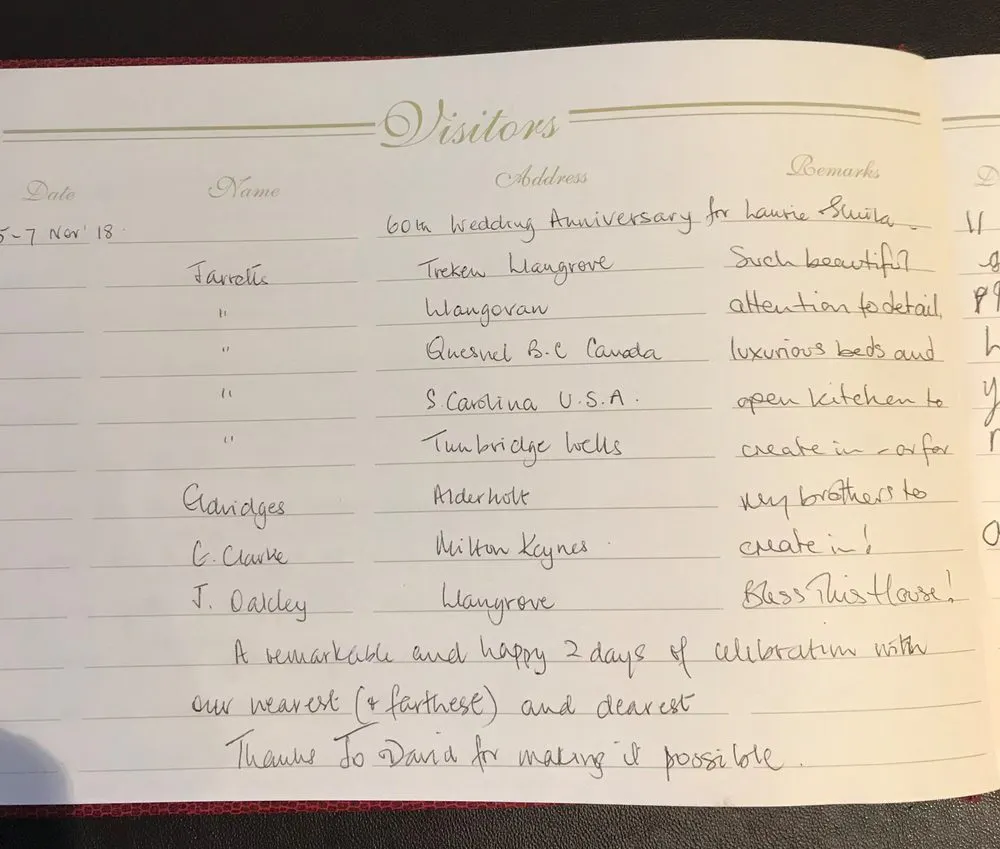 Visitors
Date Name Address Remarks
5-7 Nov '18 60th Wedding Anniversary for Laurie Sheila
Jarretts Treken Llangrove Such beautiful
" Llangovan attention to detail,
" Quesnel B.C Canada luxurious beds and
" S. Carolina U.S.A. open kitchen to
" Tunbridge Wells create in - or for
Eldridges Alderholt my brothers to
C. Clarke Milton Keynes create in!
J. Oakley Llangrove Bless This House!
A remarkable and happy 2 days of celebration with
our nearest (& farthest) and dearest
Thanks Jo David for making it possible.